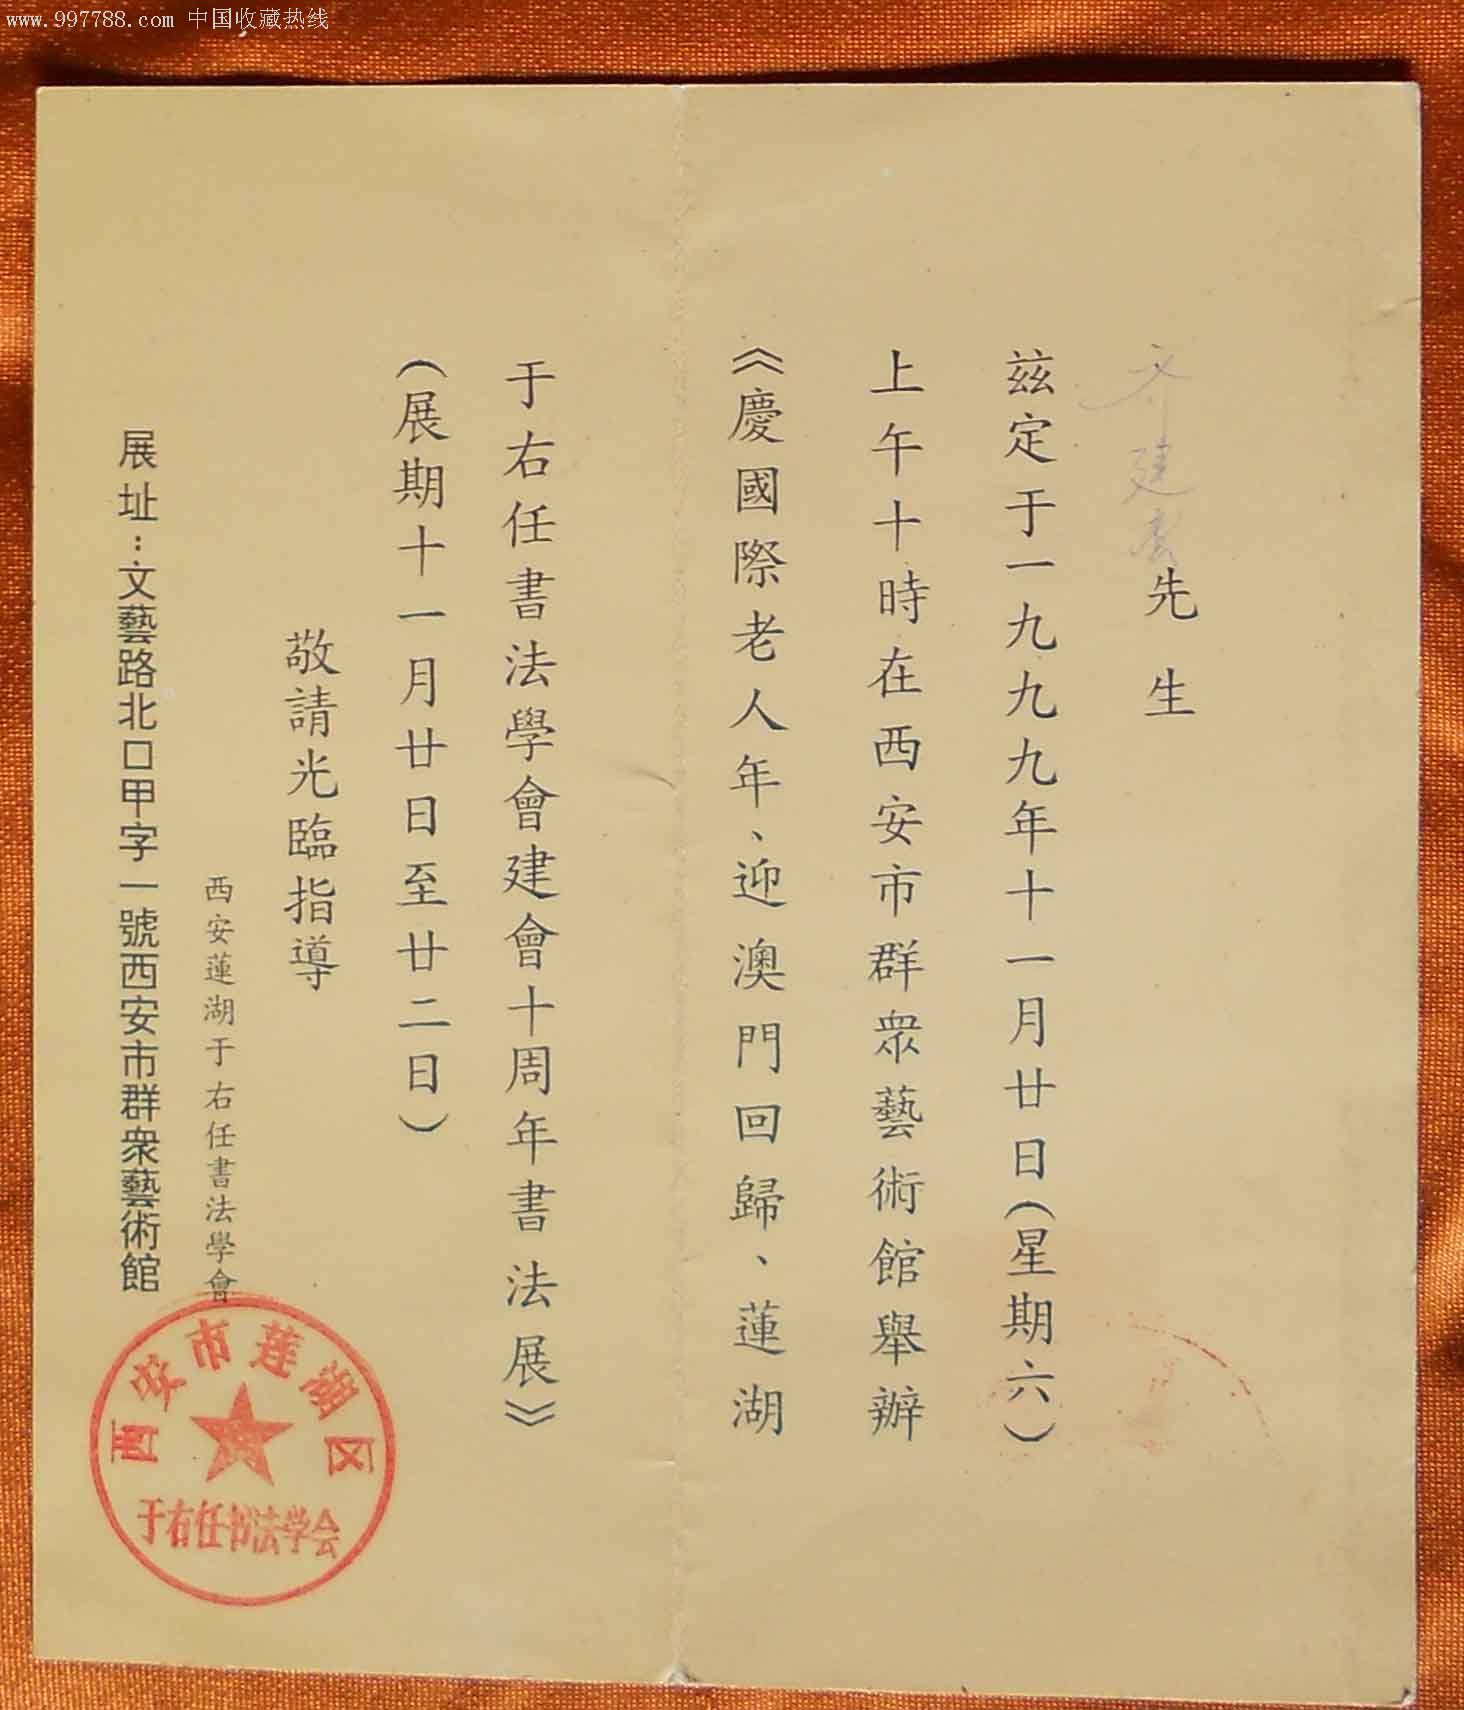 www.997788.com 中国收藏热线
建
先生
兹定于一九九九年十一月廿日(星期六)
上午十時在西安市群衆藝術館舉辦
《慶國際老人年、迎澳門回歸、蓮湖
于右任書法學會建會十周年書法展》
(展期十一月廿日至廿二日)
敬請光臨指導
西安蓮湖于右任書法學會
展址:文藝路北口甲字一號西安市群衆藝術館
西安市莲湖区
于右任书法学会